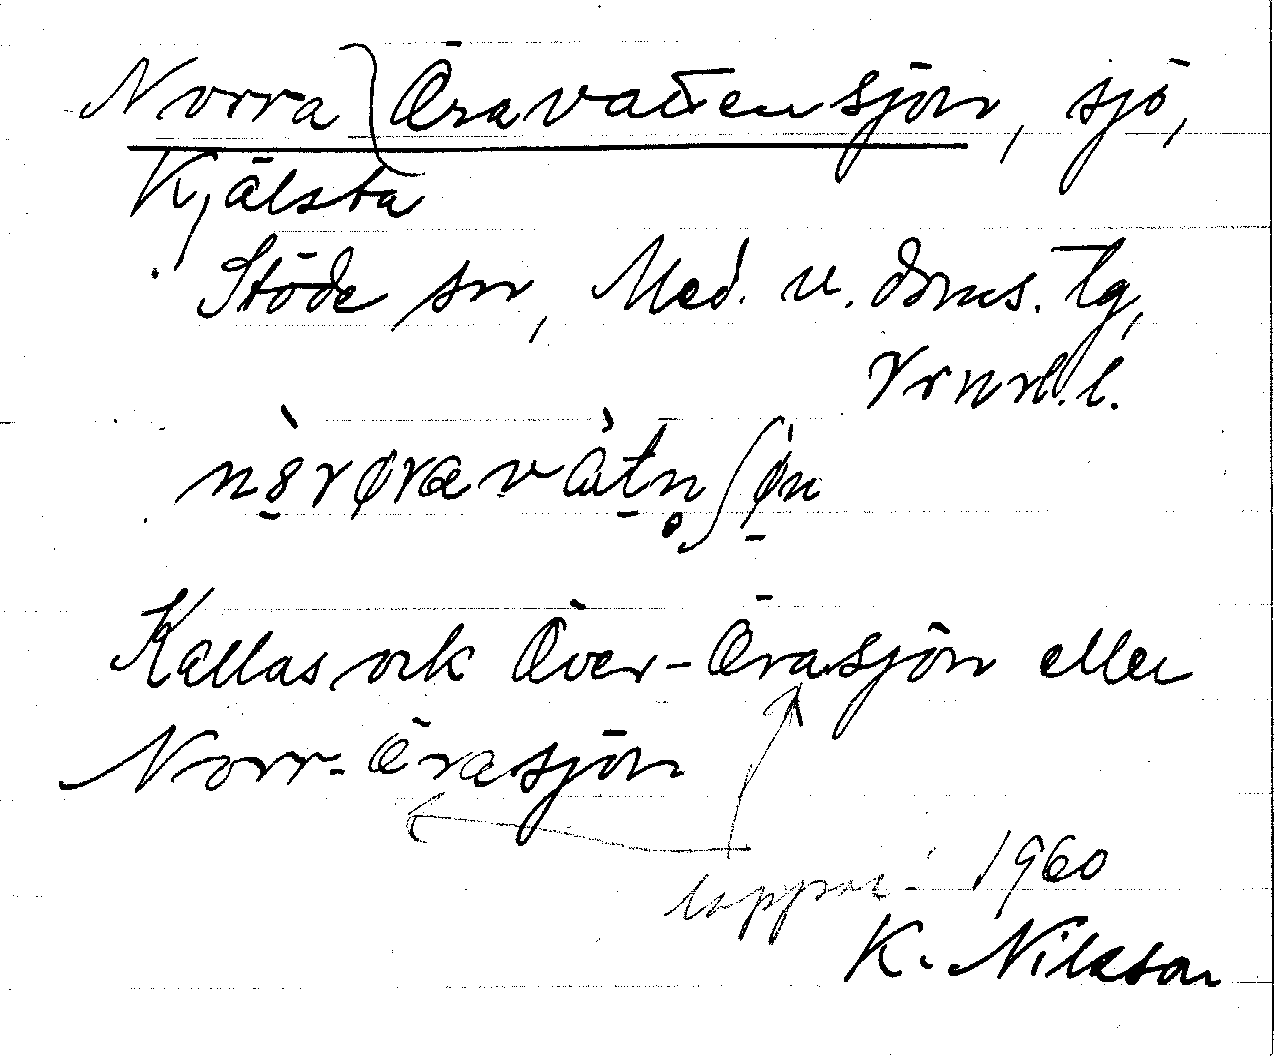 Norra Öravattensjön, sjö,
Kjälsta
Stöde sn, Med. v. doms. tg,
nörørav̀atn̥ʃøn
Kallas ock Över-Örasjön eller
Norr-Örasjön
1960
K. Nilsson